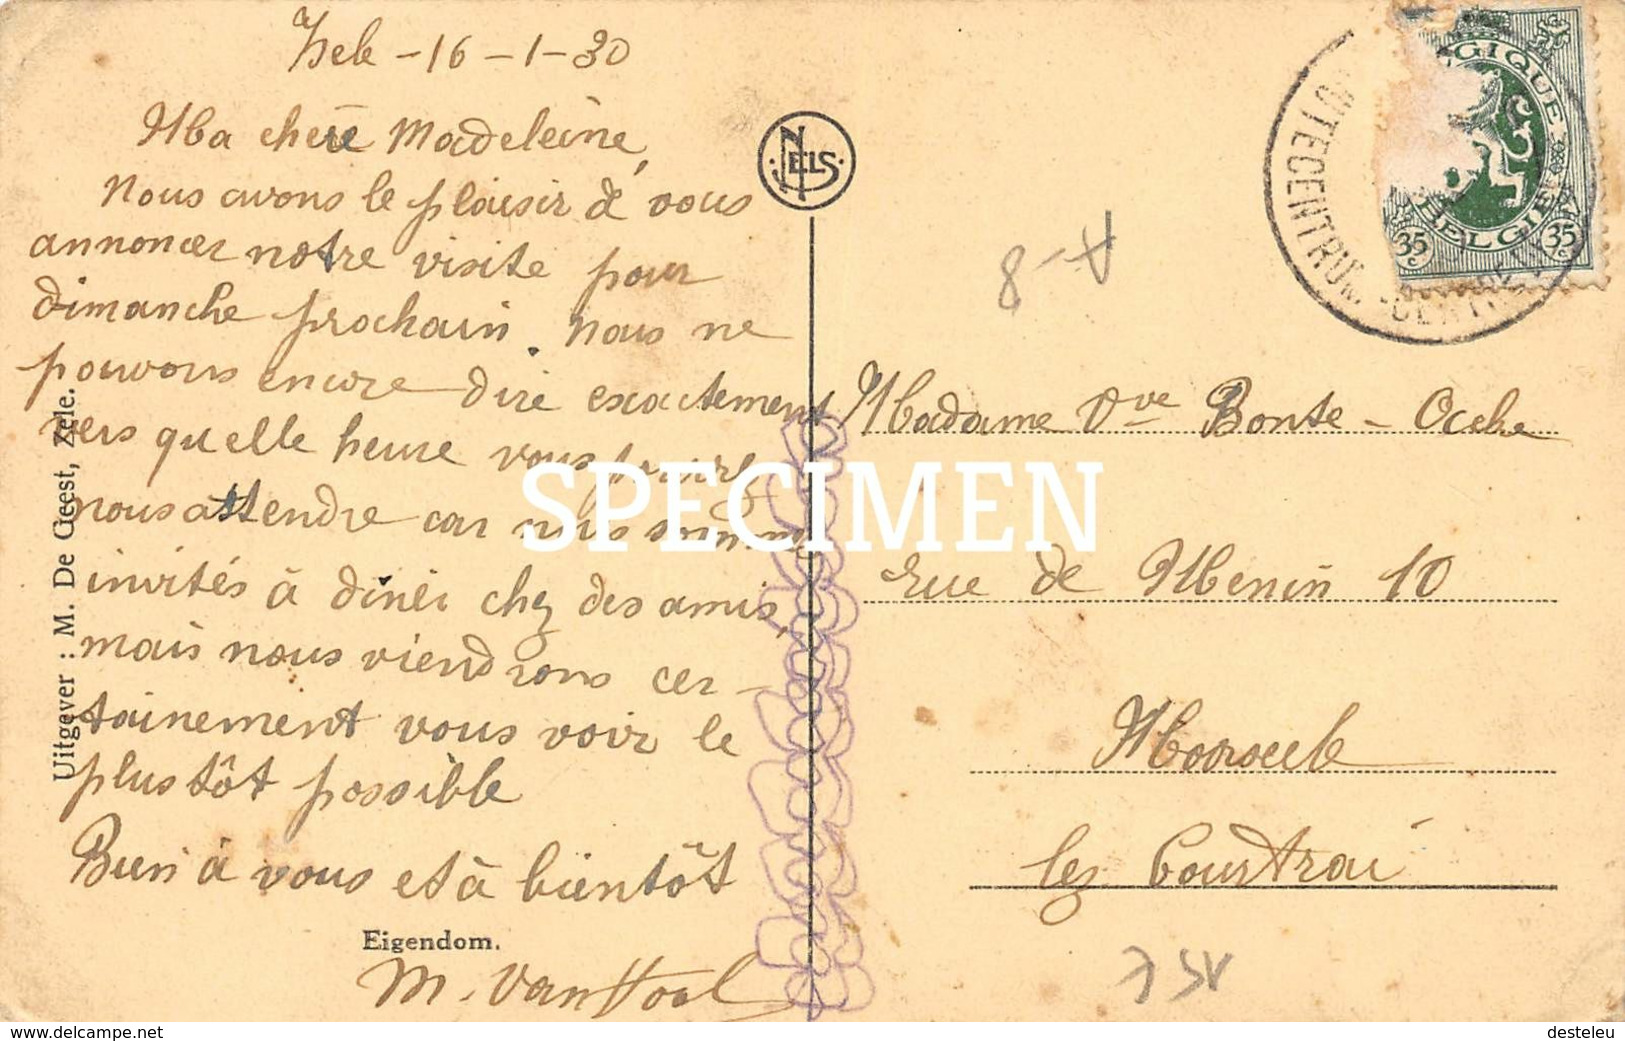 Zele - 16 - 1 - 30
Ma chère Madeleine,
Nous avons le plaisir de vous
annoncer notre visite pour
dimanche prochain. Nous ne
pouvons encore dire exactement
vers quelle heure vous pourrez
nous attendre car nous sommes
invités à dîner chez des amis,
mais nous viendrons cer-
tainement vous voir le
plus tôt possible
Bien à vous et à bientôt
M. Van Hool
Eigendom.
Uitgever : M. De Geest, Zele.
NELS
SPECIMEN
BELGIQUE
BELGIË
35 35
Madame Vve Bonte - Ocke
rue de Menin 10
Moorseele
lez Courtrai
www.delcampe.net
desteleu